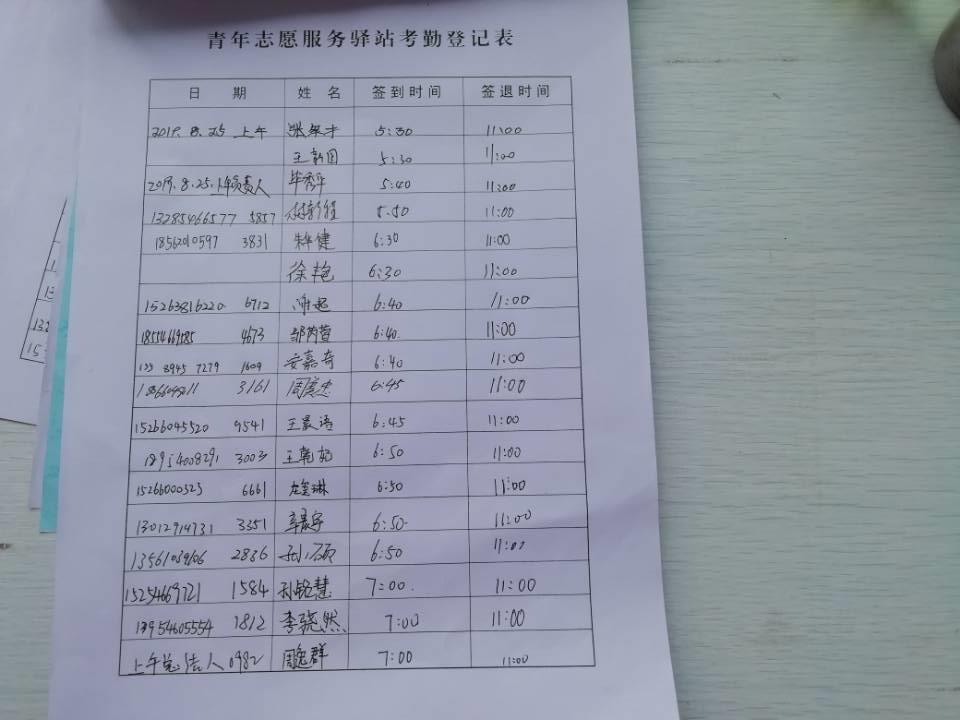 青年志愿服务驿站考勤登记表
日 期 姓 名 签到时间 签退时间
2019.8.25 上午 5:30 11:00
王 5:30 11:00
2019.8.25.上午负责人 毕秀华 5:40 11:00
13285466577 5857 5:50 11:00
18562010597 3831 健 6:30 11:00
徐艳 6:30 11:00
15263816220 6712 6:40 11:00
18554669585 4673 邹芮萱 6:40 11:00
133 8945 7279 1609 安嘉奇 6:40 11:00
3161 周彦杰 6:45 11:00
15266045520 9541 王晨语 6:45 11:00
18954008291 3003 王乾 6:50 11:00
15266000323 6661 琳 6:50 11:00
13012914731 3351 宇 6:50 11:00
13561039106 2836 孙小硕 6:50 11:00
15254669721 1584 孙铭慧 7:00 11:00
13954605554 1812 李骁然 7:00 11:00
上午 人 0982 周 群 7:00 11:00